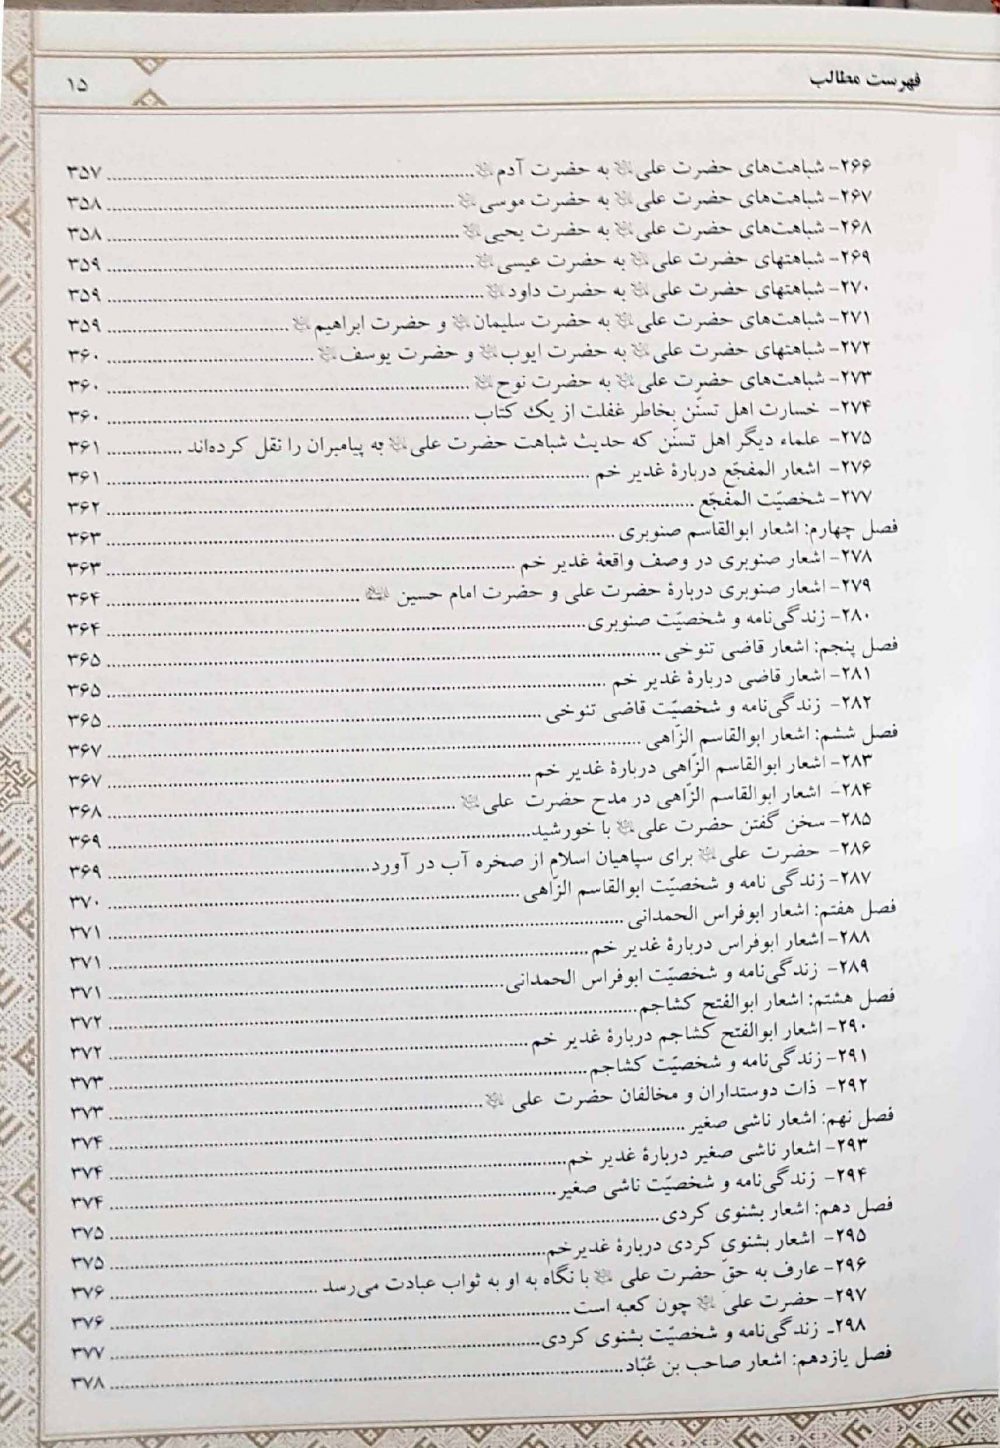 فهرست مطالب ۱۵
۲۶۶- شباهت‌های حضرت علی به حضرت آدم ۳۵۷
۲۶۷- شباهت‌های حضرت علی به حضرت موسی ۳۵۸
۲۶۸- شباهت‌های حضرت علی به حضرت یحیی ۳۵۸
۲۶۹- شباهتهای حضرت علی به حضرت عیسی ۳۵۹
۲۷۰- شباهتهای حضرت علی به حضرت داود ۳۵۹
۲۷۱- شباهت‌های حضرت علی به حضرت سلیمان و حضرت ابراهیم ۳۵۹
۲۷۲- شباهتهای حضرت علی به حضرت ایوب و حضرت یوسف ۳۶۰
۲۷۳- شباهت‌های حضرت علی به حضرت نوح ۳۶۰
۲۷۴- خسارت اهل تسنّن بخاطر غفلت از یک کتاب ۳۶۰
۲۷۵- علماء دیگر اهل تسنّن که حدیث شباهت حضرت علی به پیامبران را نقل کرده‌اند ۳۶۱
۲۷۶- اشعار المفجّع دربارهٔ غدیر خم ۳۶۱
۲۷۷- شخصیّت المفجّع ۳۶۲
فصل چهارم: اشعار ابوالقاسم صنوبری ۳۶۳
۲۷۸- اشعار صنوبری در وصف واقعهٔ غدیر خم ۳۶۳
۲۷۹- اشعار صنوبری دربارهٔ حضرت علی و حضرت امام حسین ۳۶۴
۲۸۰- زندگی‌نامه و شخصیّت صنوبری ۳۶۴
فصل پنجم: اشعار قاضی تنوخی ۳۶۵
۲۸۱- اشعار قاضی دربارهٔ غدیر خم ۳۶۵
۲۸۲- زندگی‌نامه و شخصیّت قاضی تنوخی ۳۶۵
فصل ششم: اشعار ابوالقاسم الزّاهی ۳۶۷
۲۸۳- اشعار ابوالقاسم الزّاهی دربارهٔ غدیر خم ۳۶۷
۲۸۴- اشعار ابوالقاسم الزّاهی در مدح حضرت علی ۳۶۸
۲۸۵- سخن گفتن حضرت علی با خورشید ۳۶۹
۲۸۶- حضرت علی برای سپاهیان اسلام از صخره آب در آورد ۳۶۹
۲۸۷- زندگی نامه و شخصیّت ابوالقاسم الزّاهی ۳۷۰
فصل هفتم: اشعار ابوفراس الحمدانی ۳۷۱
۲۸۸- اشعار ابوفراس دربارهٔ غدیر خم ۳۷۱
۲۸۹- زندگی‌نامه و شخصیّت ابوفراس الحمدانی ۳۷۱
فصل هشتم: اشعار ابوالفتح کشاجم ۳۷۲
۲۹۰- اشعار ابوالفتح کشاجم دربارهٔ غدیر خم ۳۷۲
۲۹۱- زندگی‌نامه و شخصیّت کشاجم ۳۷۳
۲۹۲- ذات دوستداران و مخالفان حضرت علی ۳۷۳
فصل نهم: اشعار ناشی صغیر ۳۷۴
۲۹۳- اشعار ناشی صغیر دربارهٔ غدیر خم ۳۷۴
۲۹۴- زندگی‌نامه و شخصیّت ناشی صغیر ۳۷۴
فصل دهم: اشعار بشنوی کردی ۳۷۵
۲۹۵- اشعار بشنوی کردی دربارهٔ غدیرخم ۳۷۵
۲۹۶- عارف به حقّ حضرت علی با نگاه به او به ثواب عبادت می‌رسد ۳۷۶
۲۹۷- حضرت علی چون کعبه است ۳۷۶
۲۹۸- زندگی‌نامه و شخصیّت بشنوی کردی ۳۷۷
فصل یازدهم: اشعار صاحب بن عُبّاد ۳۷۸